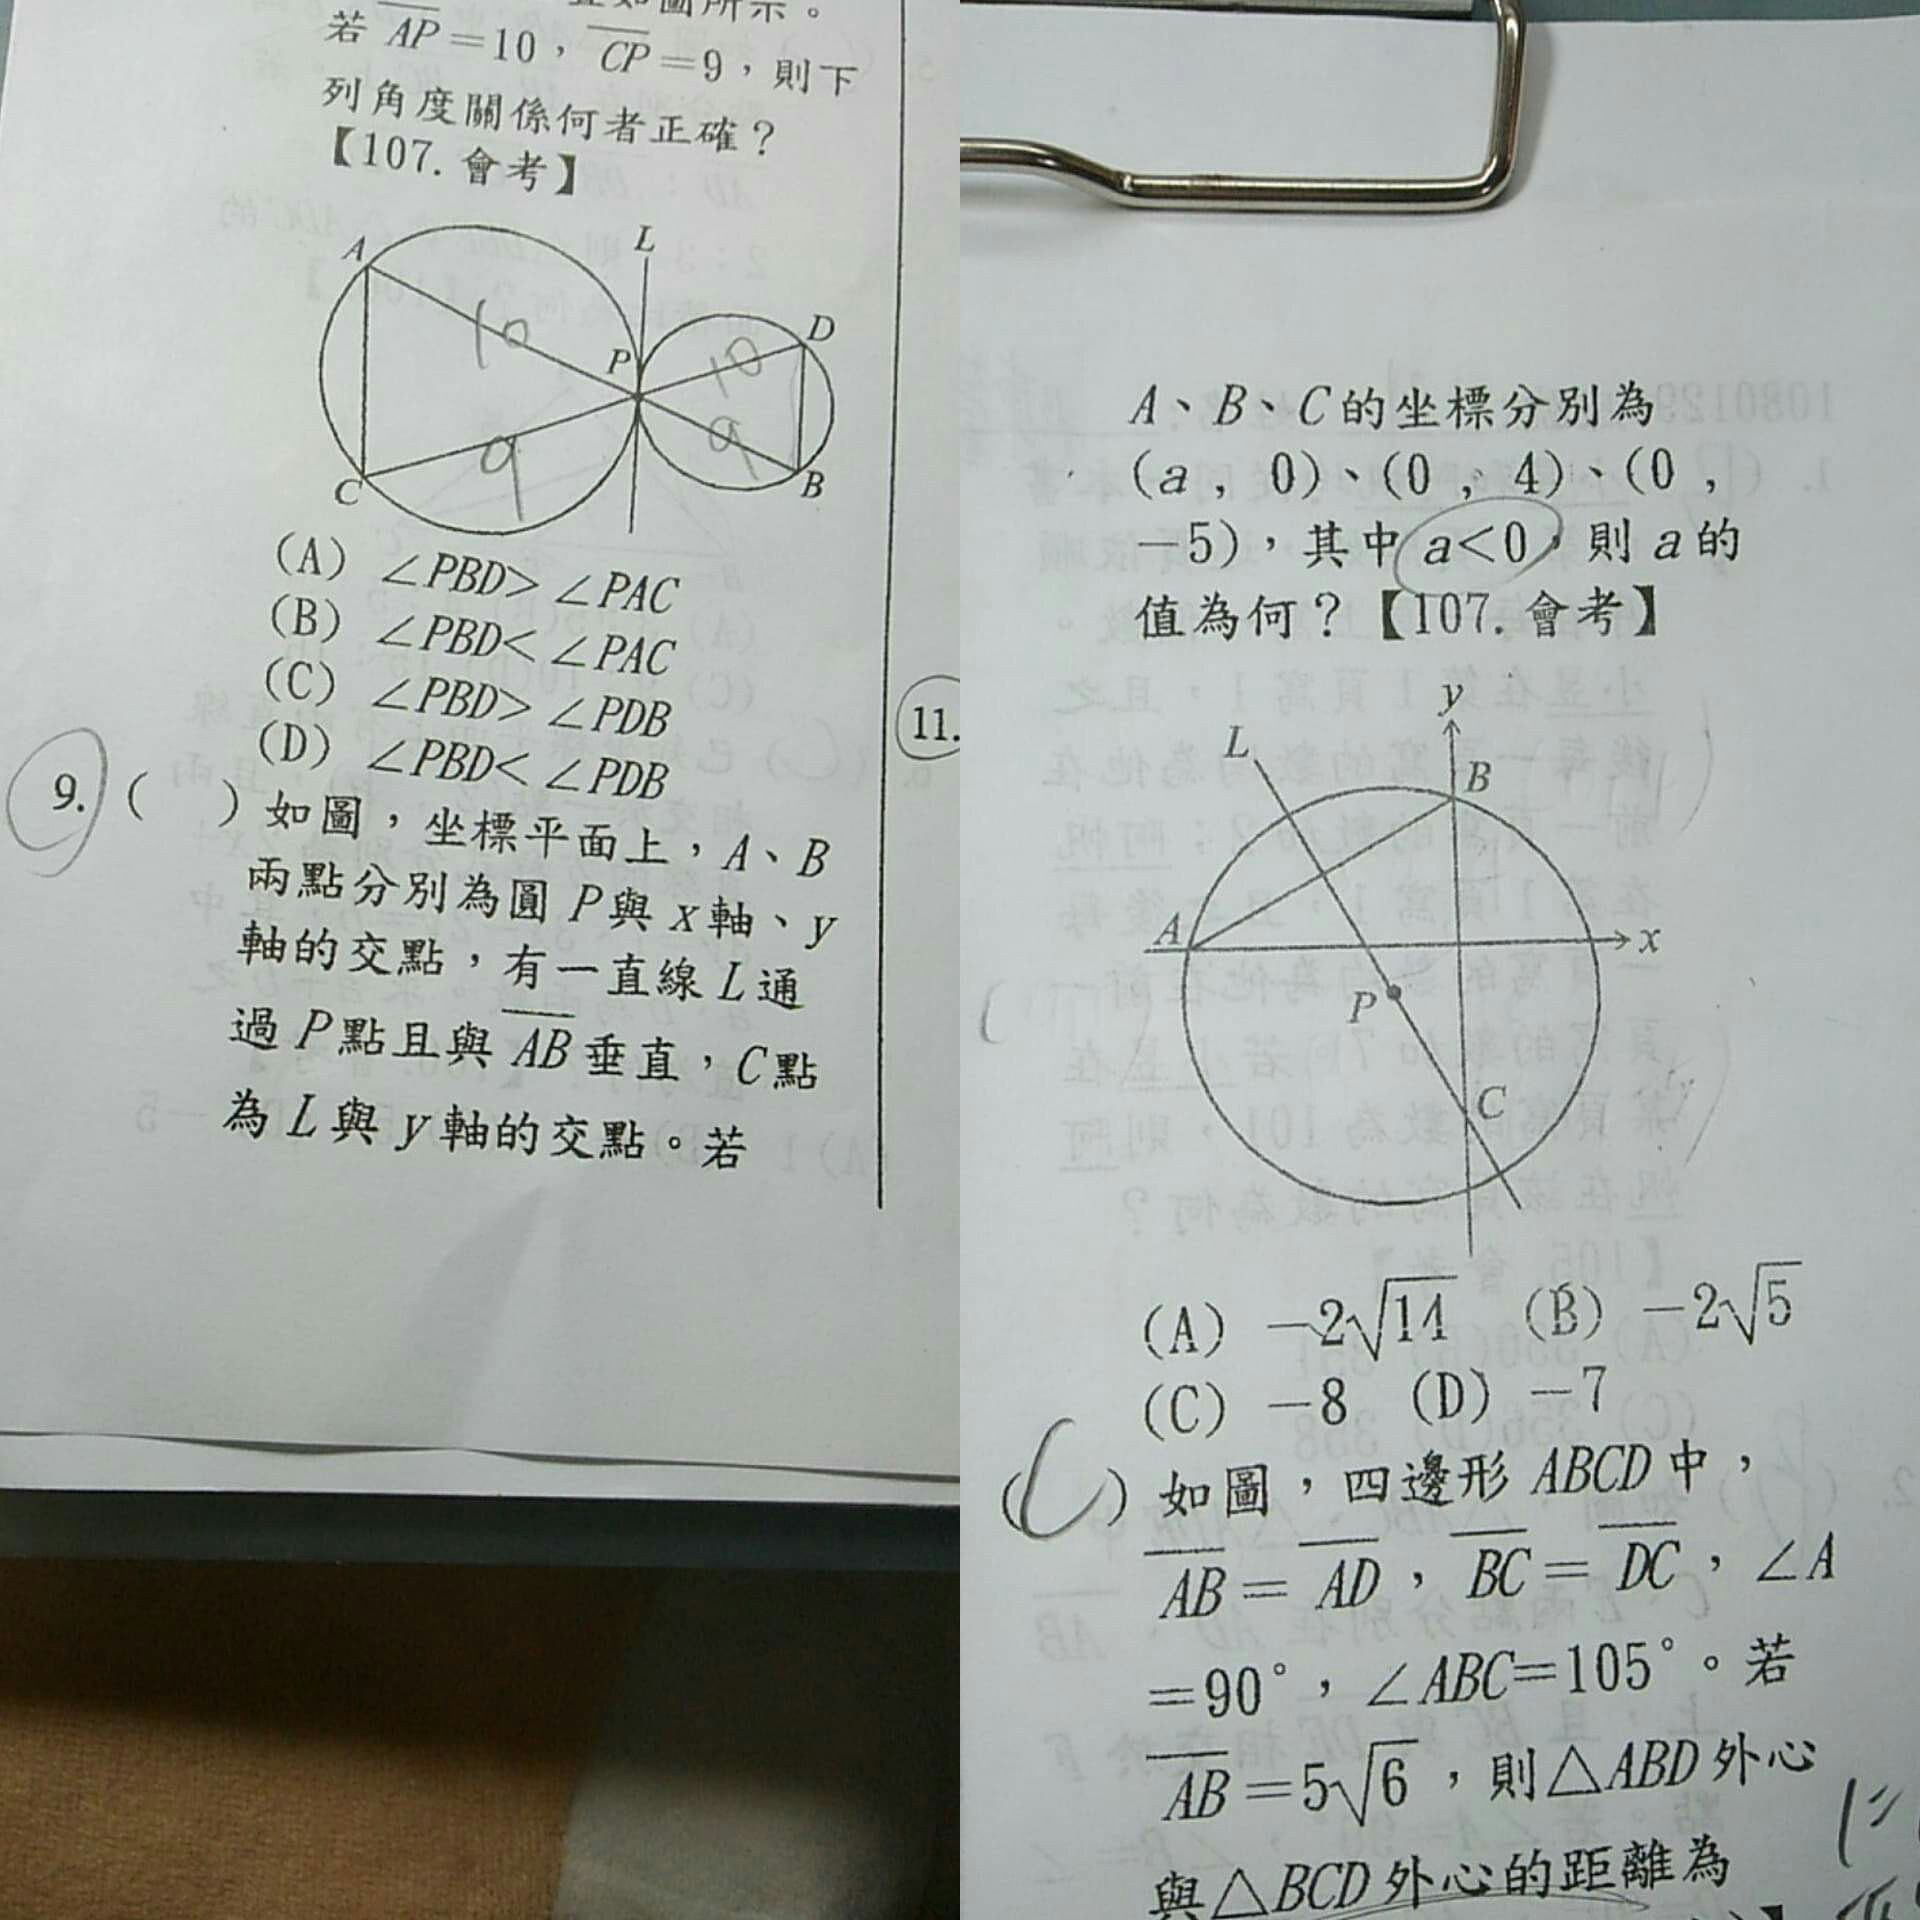 若 AP=10，CP=9，則下
列角度關係何者正確？
【107. 會考】
A
L
D
P
10
9
9
C
B
(A) ∠PBD> ∠PAC
(B) ∠PBD< ∠PAC
(C) ∠PBD> ∠PDB
(D) ∠PBD< ∠PDB
9. ( ) 如圖，坐標平面上，A、B
兩點分別為圓 P與 x軸、y
軸的交點，有一直線 L通
過 P點且與 AB 垂直，C點
為 L與 y軸的交點。若
11.
A、B、C的坐標分別為
(a , 0)、(0 , 4)、(0 ,
−5)，其中 a<0，則 a的
值為何？【107. 會考】
y
L
B
A
x
P
C
(A) −2√14 (B) −2√5
(C) −8 (D) −7
(C) 如圖，四邊形 ABCD中，
AB= AD，BC= DC，∠A
=90°，∠ABC=105°。若
AB=5√6，則△ABD外心
與△BCD外心的距離為